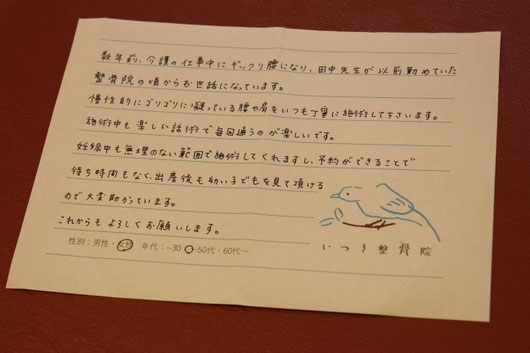 数年前、介護の仕事中にギックリ腰になり、田中先生が以前勤めていた
整骨院の頃からお世話になっています。
慢性的にゴリゴリに凝っている腰や肩をいつも丁寧に施術して下さいます。
施術中も楽しい話術で毎回通うのが楽しいです。
妊娠中も無理のない範囲で施術してくれますし、予約ができることで
待ち時間もなく、出産後も幼い子どもを見て頂ける
ので大変助かっています。
これからもよろしくお願いします。
性別：男性・ 年代：~30 ・50代・60代~
いつき整骨院